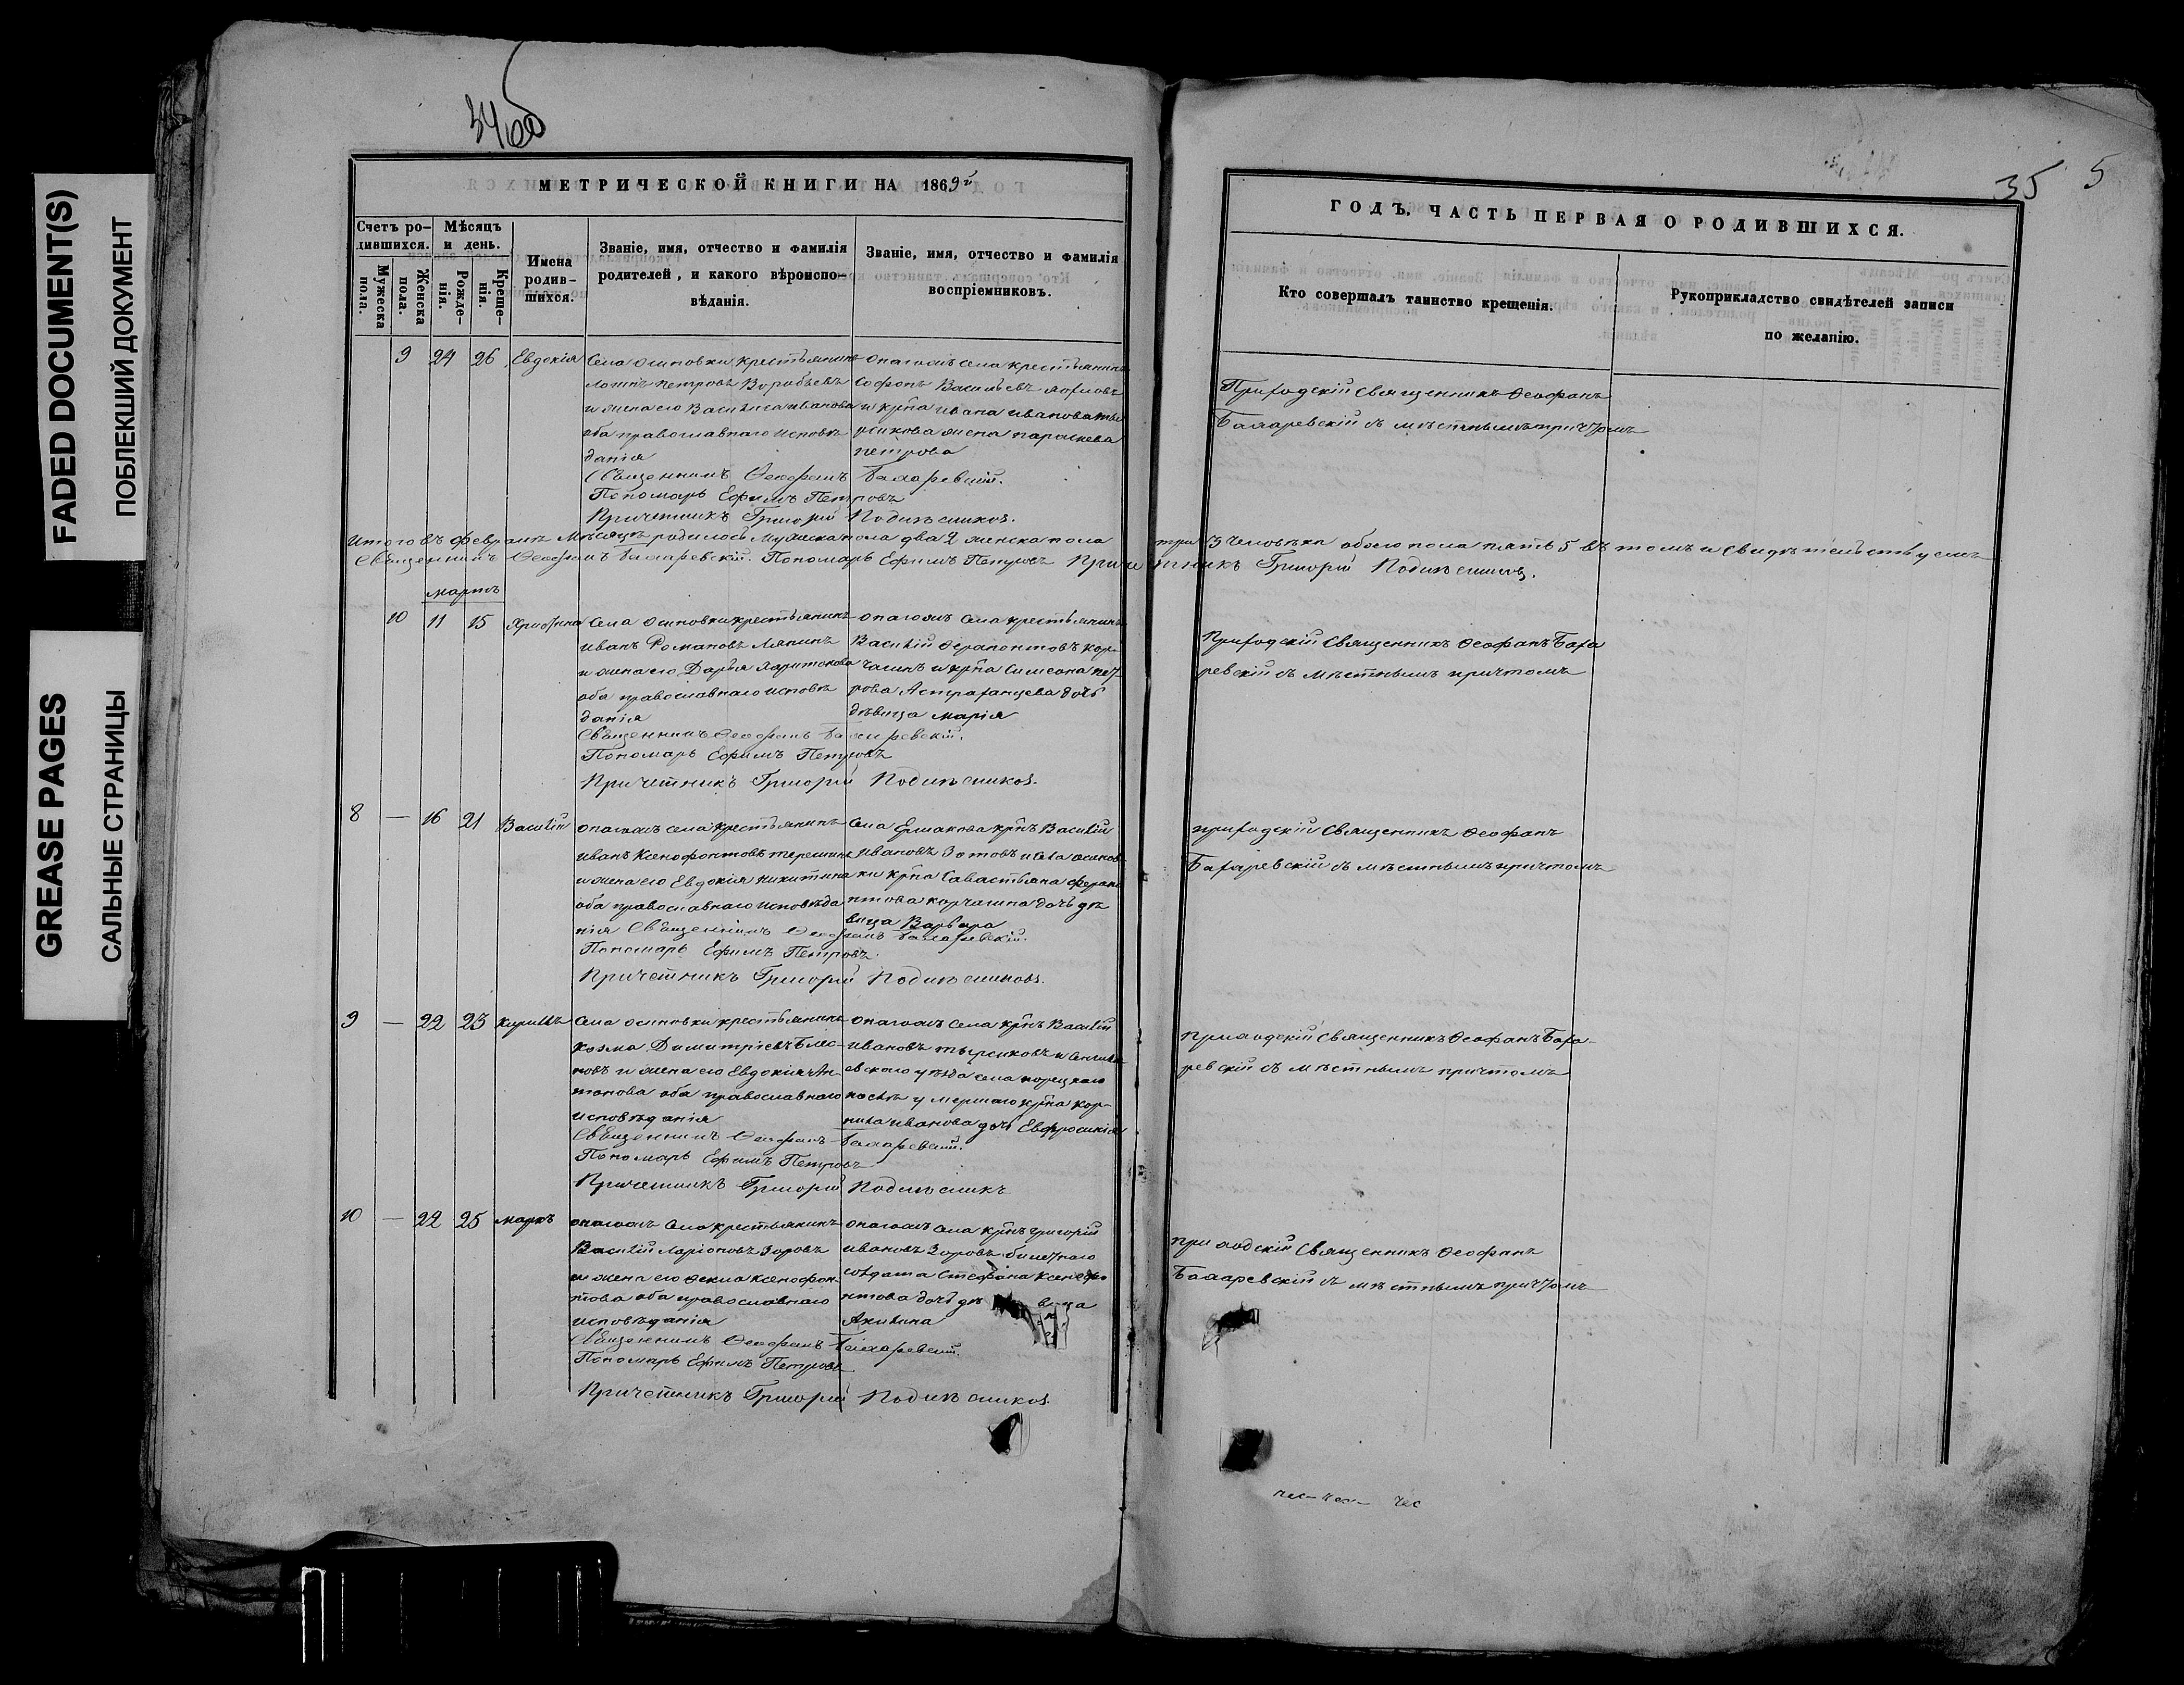 FADED DOCUMENT(S)
ПОБЛЕКШИЙ ДОКУМЕНТ
GREASE PAGES
САЛЬНЫЕ СТРАНИЦЫ
34об
МЕТРИЧЕСКОЙ КНИГИ НА 1869й
Счетъ ро-
дившихся.
Мужеска
пола.
Женска
пола.
Мѣсяцъ
и день.
Рожде-
нія.
Креще-
нія.
Имена
родив-
шихся.
Званіе, имя, отчество и фамилія
родителей, и какого вѣроиспо-
вѣданія.
Званіе, имя, отчество и фамилія
воспріемниковъ.
9 24 26 Евдокія
Села Осиновки крестьянинъ
Петровъ Воробьевъ
и жена его Василиса Иванова
оба православнаго исповѣ
данія
села крестьянинъ
Софонъ Васильевъ
и крна Ивана Иванова
жена Параскева
Петрова
Священникъ Ѳеофанъ Бахаревскій.
Пономарь Ефимъ Петровъ
Причетникъ Григорій
Итого въ февралѣ мѣсяцѣ родилось мужеска пола два 2 женска пола
Священникъ Ѳеофанъ Бахаревскій. Пономарь Ефимъ Петровъ
мартъ
10 11 15
Села Осиновки крестьянинъ
Иванъ Романовъ Лянинъ
и жена его Дарья Харитонова
оба православнаго исповѣ
данія
села крестьянинъ
Василій Ферапонтовъ Кор-
чагинъ и крна Симеона Пет
рова Астраханцева дочь
дѣвица Марія
Священникъ Ѳеофанъ Бахаревскій.
Пономарь Ефимъ Петровъ
Причетникъ Григорій
8 — 16 21 Василій
села крестьянинъ
Иванъ Ксенофонтовъ
и жена его Евдокія Никитина
оба православнаго исповѣда
нія
Села Ермакова крнъ Василій
Ивановъ Зотовъ и села Осинов
ки крна Савастьяна Ферапо
нтова Корчагина дочь дѣ
вица Варвара
Священникъ Ѳеофанъ Бахаревскій.
Пономарь Ефимъ Петровъ
Причетникъ Григорій
9 — 22 23 Кириллъ
Села Осиновки крестьянинъ
Козма Димитріевъ
новъ и жена его Евдокія Ан-
тонова оба православнаго
исповѣданія
села крнъ Василій
Ивановъ
уѣзда села
умершаго крна Кор-
нила Иванова дочь Евфросинія
Священникъ Ѳеофанъ Бахаревскій.
Пономарь Ефимъ Петровъ
Причетникъ Григорій
10 — 22 25 Маркъ
села крестьянинъ
Василій Ларіоновъ Зоровъ
и жена его Ксенофон-
това оба православнаго
исповѣданія
села крнъ Григорій
Ивановъ Зоровъ билетнаго
солдата Стефана Ксенофо
нтова дочь дѣвица
Акилина
Священникъ Ѳеофанъ Бахаревскій.
Пономарь Ефимъ Петровъ
Причетникъ Григорій
35 5
ГОДЪ, ЧАСТЬ ПЕРВАЯ О РОДИВШИХСЯ.
Кто совершалъ таинство крещенія.
Рукоприкладство свидѣтелей записи
по желанію.
Приходскій Священникъ Ѳеофанъ
Бахаревскій съ мѣстнымъ причтомъ
три 3 человѣка обоего пола пять 5 въ томъ и свидѣтельствуемъ
Причетникъ Григорій
Приходскій Священникъ Ѳеофанъ Баха
ревскій съ мѣстнымъ причтомъ
приходскій Священникъ Ѳеофанъ
Бахаревскій съ мѣстнымъ причтомъ
приходскій Священникъ Ѳеофанъ Баха-
ревскій съ мѣстнымъ причтомъ
приходскій Священникъ Ѳеофанъ
Бахаревскій съ мѣстнымъ причтомъ